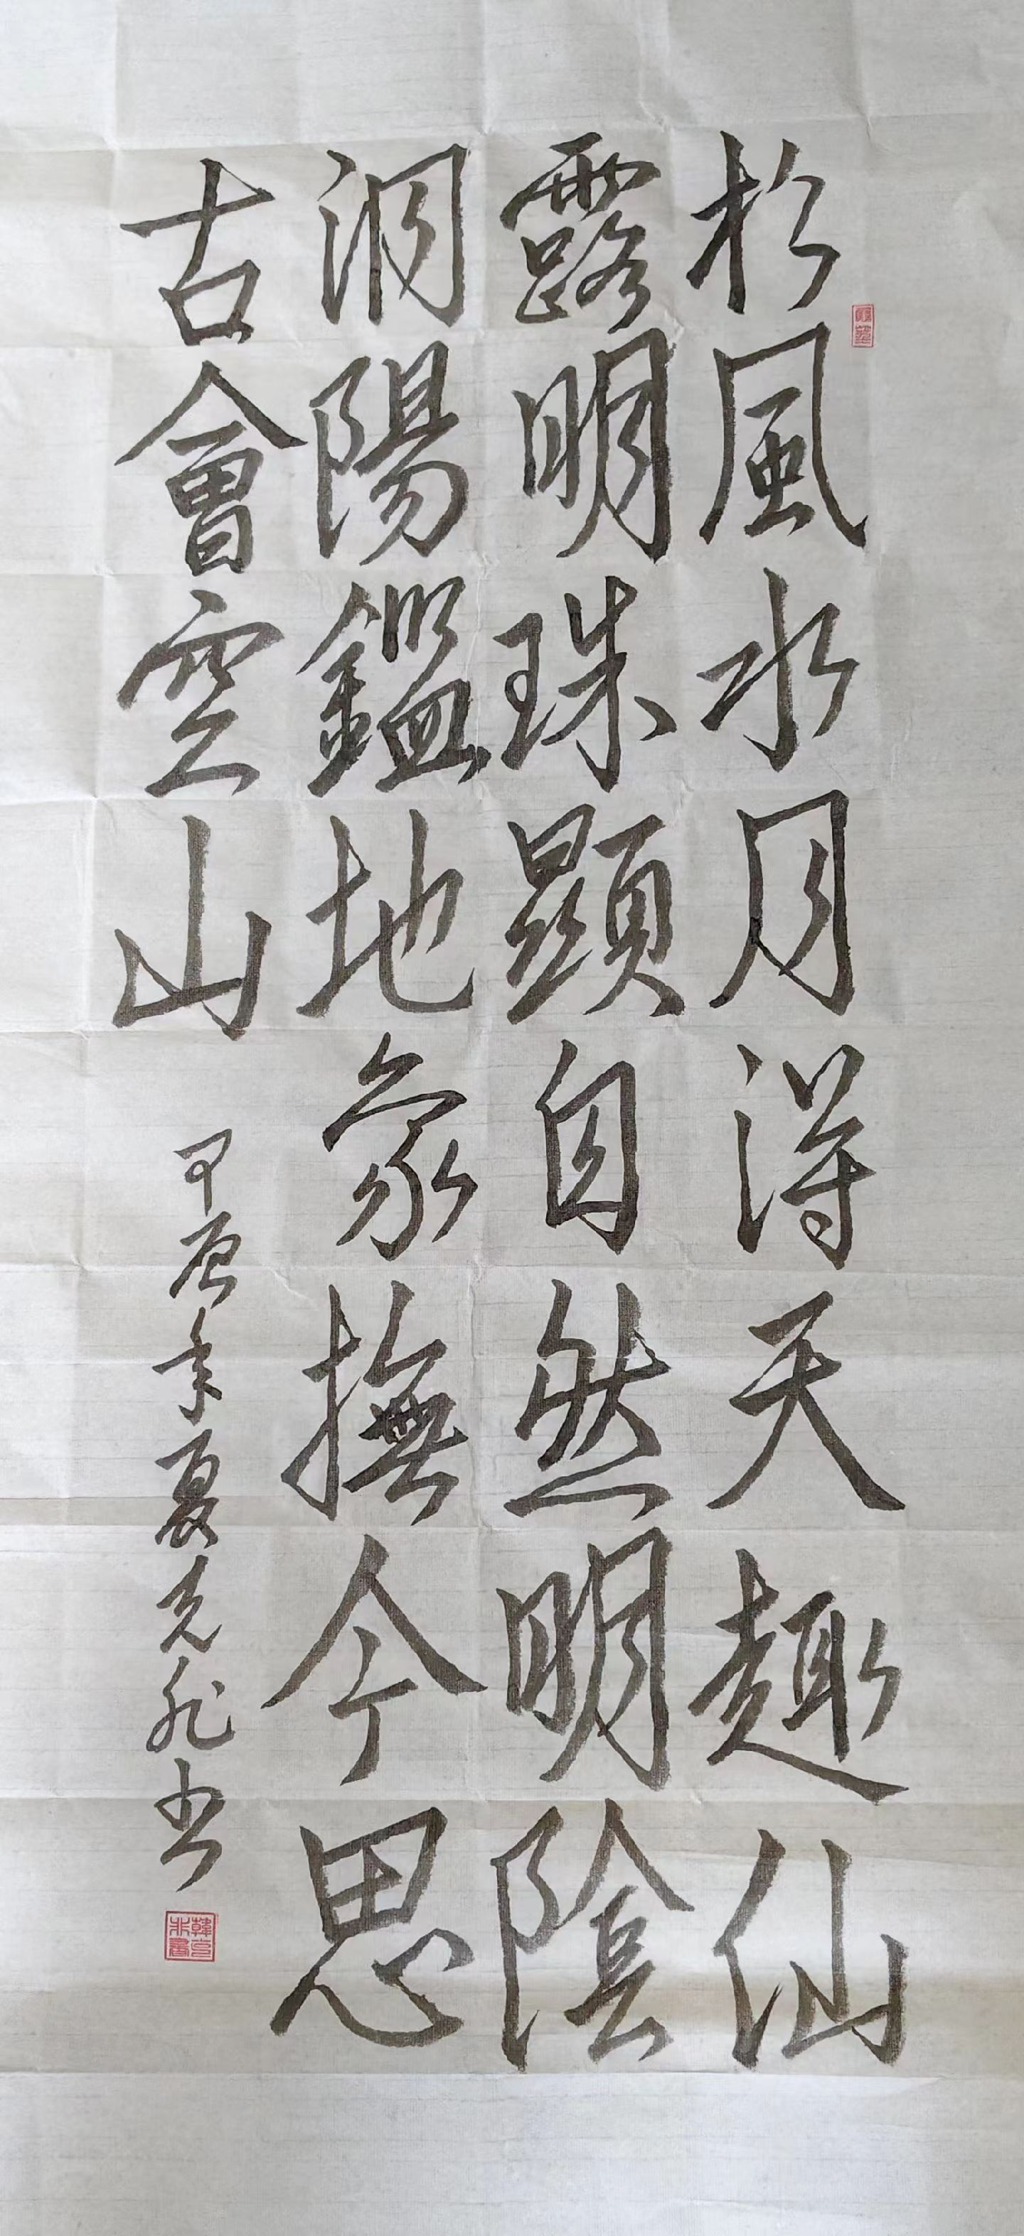 松風水月得天趣仙
露明珠顯自然明陰
洞陽鑑地象撫今思
古會空山
甲辰年夏克非书